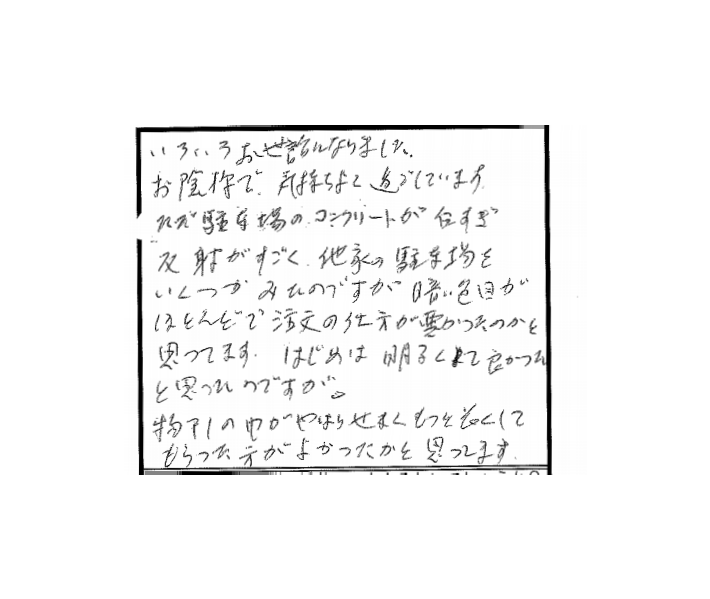 いろいろお世話になりました。
お陰様で、気持ちよく過ごしています。
ただ駐車場のコンクリートが白すぎ
反射がすごく、他家の駐車場を
いくつかみたのですが暗い色目が
ほとんどで注文の仕方が悪かったのかと
思ってます。はじめは明るくて良かった
と思ったのですが。
物干しの巾がやはりせまくもっと長くして
もらった方がよかったかと思ってます。